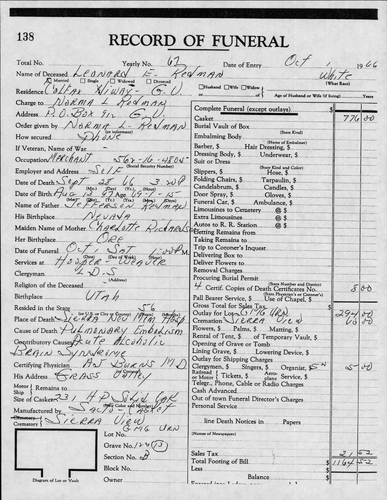 138
RECORD OF FUNERAL
Total No. Yearly No. 62 Date of Entry Oct 1, 1966
Name of Deceased Leonard E. Redman White
Married Single Widowed Divorced (What Race)
Residence Colfax Hiway - G.V. Husband Wife Widow or Age of Husband or Wife (if living) Years
Charge to Norma L Redman
Address P.O. Box G.V.
Order given by Norma L. Redman
How secured Phone
If Veteran, Name of War
Occupation Merchant (Social Security Number)
Employer and Address Self
Date of Death Sept 28 66
Date of Birth Aug
Name of Father Jefferson Redman
His Birthplace Nevada
Maiden Name of Mother Charlotte Richardson
Her Birthplace Ore
Date of Funeral Oct 1 Sat
Services at Hooper-Weaver
Clergyman L.D.S
(Address)
Religion of the Deceased
Birthplace Utah
Resided in the State 56
Place of Death Sierra Nev Mem Hosp
Cause of Death Pulmonary Embolism
Contributory Causes Acute Alcoholic
Brain Syndrome
Certifying Physician Burns M.D
His Address Grass Valley
Motor Remains
Ship to
Size of Casket
Manufactured by
Cemetery
Crematory Sierra View
GMG Urn
Lot No.
Grave No.
Section No. B
Block No.
Owner
Diagram of Lot or Vault
Complete Funeral (except outlays) $
Casket 776 00
Burial Vault of Box
(State Kind)
Embalming Body
(Name of Embalmer)
Barber, $ Hair Dressing, $
Dressing Body, $ Underwear, $
Suit or Dress
(State Kind)
Slippers (or Color) $ Hose, $
Folding Chairs, $ Tarpaulin, $
Candelabrum, $ Candles, $
Door Spray, $ Gloves, $
Funeral Car, $ Ambulance, $
Limousines to Cemetery @ $
Extra Limousines @ $
Autos to R. R. Station @ $
Getting Remains from
Taking Remains to
Trip to Coroner's Inquest
Delivering Box to
Deliver Flowers to
Removal Charges
Procuring Burial Permit
4 Certif. Copies of Death Certificates No. 8 00
(State Physician's or Coroner's)
Pall Bearer Service, $ Use of Chapel, $
Gross Total for Sales Tax
Outlay for Lot GMG Urn 294 00
Cremation Sierra View
Flowers, $ Palms, $ Matting, $
Rental of Tent, $ of Temporary Vault, $
Opening of Grave or Tomb
Lining Grave, $ Lowering Device, $
Outlay for Shipping Charges
Clergymen, $ Singers, $ Organist, $ 5 00
Railroad or Motor Tickets, $ Aero-service, $
Telegr., Phone, Cable or Radio Charges
Cash Advanced
Out of town Funeral Director's Charges
Personal Service
line Death Notices in Papers
(Names of Newspapers)
Sales Tax 21 52
Total Footing of Bill $ 1164 52
Less
Balance